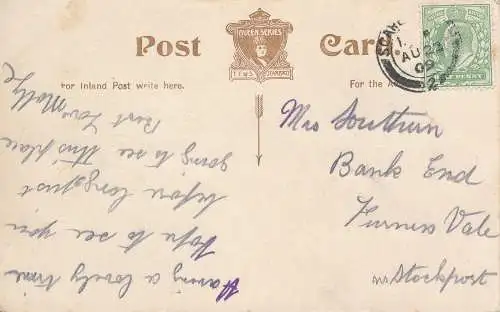 Post Card
QUEEN SERIES
For Inland Post write here.
For the A
AU 23
09
Having a lovely time
hope to see you
before long, just
going to see this place
Best Love
Molly
Mrs Southern
Bank End
Furness Vale
nr Stockport